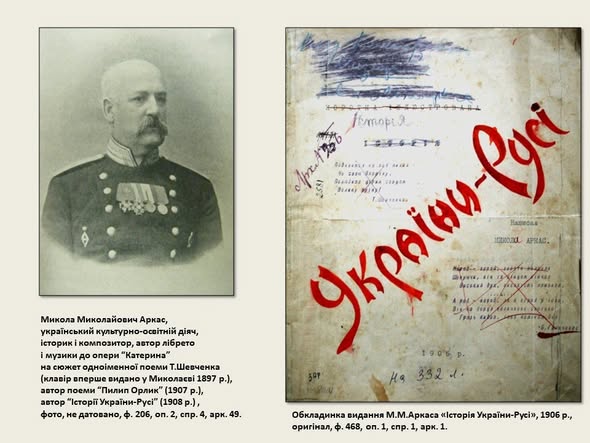 КОРОТКА ІЛЮСТРОВАНА
Історія
України-Русі
Арк. 336
Подивись на рай тихий
Т.Шевченко
Написав
МИКОЛА АРКАС.
1906 р.
На 332 л.
Микола Миколайович Аркас,
український культурно-освітній діяч,
історик і композитор, автор лібрето
і музики до опери “Катерина”
на сюжет одноіменної поеми Т.Шевченка
(клавір вперше видано у Миколаєві 1897 р.),
автор поеми “Пилип Орлик” (1907 р.),
автор “Історії України-Русі” (1908 р.) ,
фото, не датовано, ф. 206, оп. 2, спр. 4, арк. 49.
Обкладинка видання М.М.Аркаса «Історія України-Русі», 1906 р.,
оригінал, ф. 468, оп. 1, спр. 1, арк. 1.